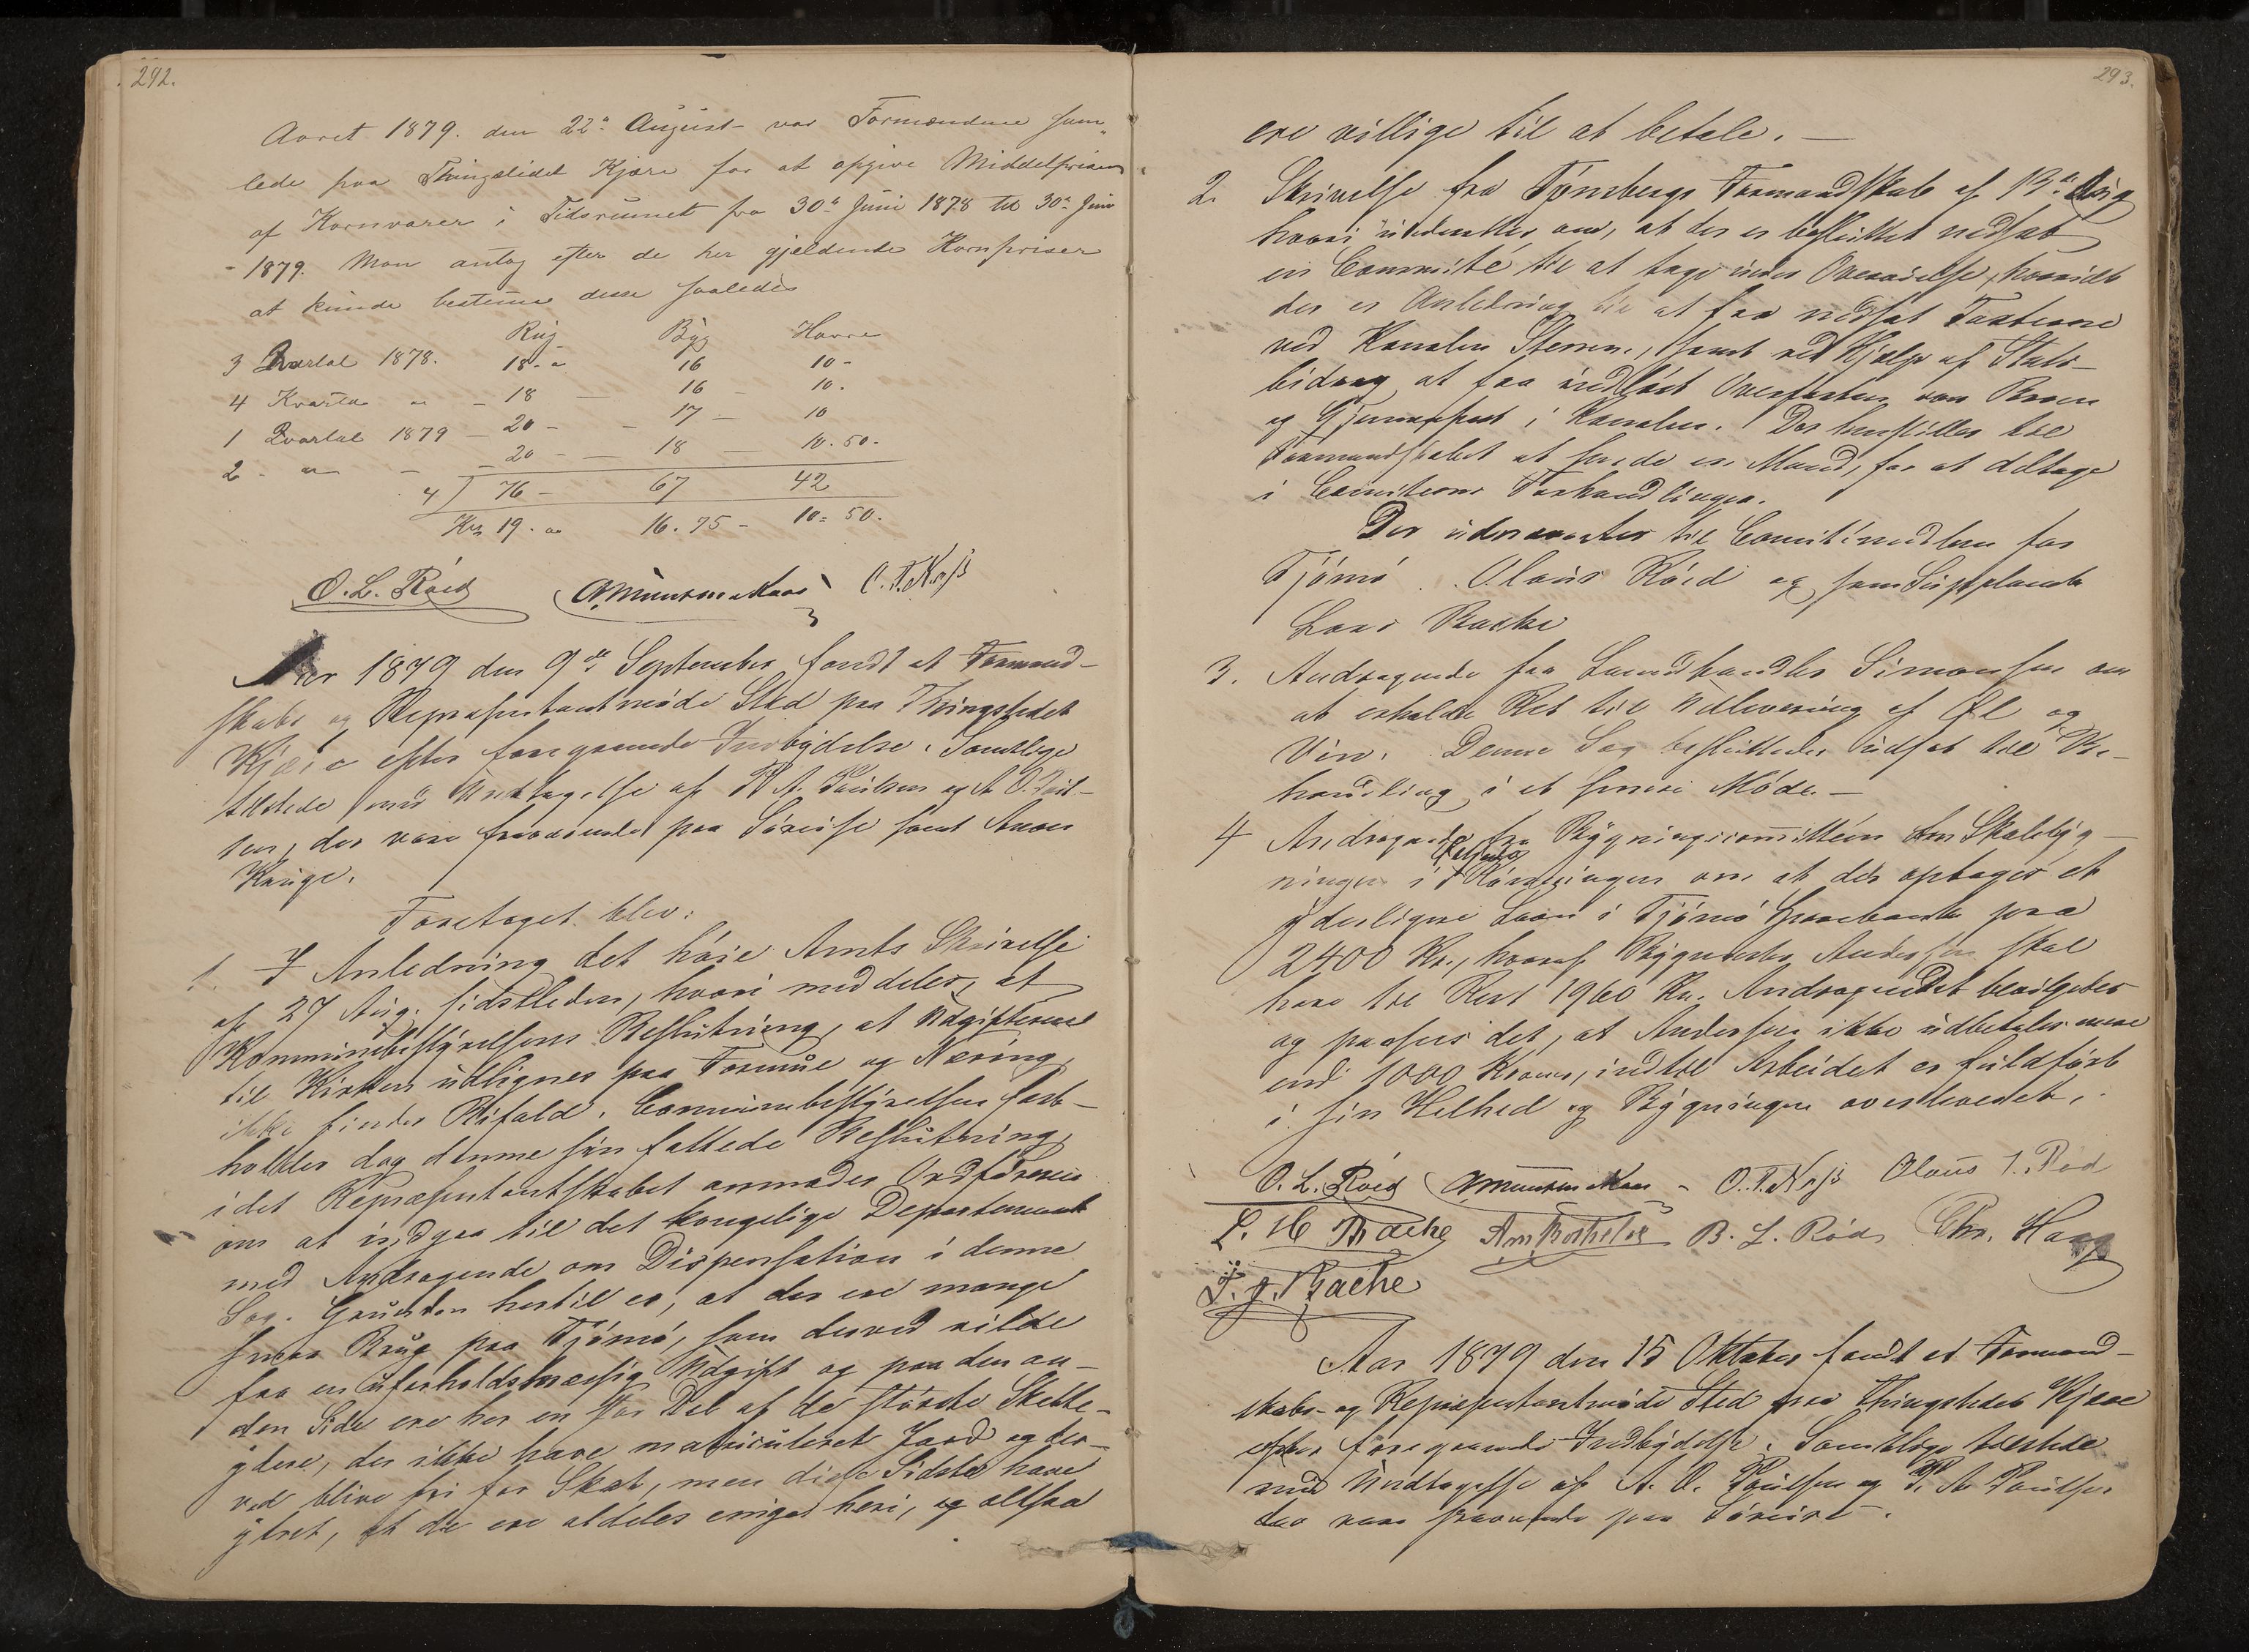 292.
Aaret 1879. den 22de August var Formændene sam„
lede paa Thingstedet Kjære for at opgive Middelprisen
af Kornvarer i Tidsrumet fra 30te Juni 1878 til 30te Juni
1879. Man antog efter de her gjældende Kornpriser
at kunde bestemme disse saaledes
Rug Byg Havre
3 Qvartal 1878. 18 - " 16 10 -
4 Kvartal " - 18 - 16 10.
1 Qvartal 1879 - 20 - - 17 - 10
2 - " - - 20 - - 18 - 10. 50 -
4) 76 - 67 42
Kr 19. " 16. 75 - 10 = 50.
O. L. Röed AMuunsen Kaas O. T. Næss
Aar 1879 den 9de September fandt et Formand-
skabs og Repræsentantmöde Sted paa Thingstedet
Kjære efter foregaaende Indbydelse. Samtlige
tilstede med Undtagelse af P. A. Paulsen og A. O. Poul-
sen, der vare fraværende paa Söreise samt Anon
Kruge.
Foretaget blev:
1. I Anledning det höie Amts Skrivelse
af 27 Aug. sidstleden, hvori meddeles, at
Kommunebestyrelsens Beslutning, at Udgifterne
til Kirken udlignes paa Formue og Næring,
ikke finder Bifald. Communebestyrelsen fast-
holder dog denne sin fattede Beslutning,
idet Repræsentantskabet anmoder Ordföreren
om at indgaa til det kongelige Departement
med Andragende om Dispensation i denne
Sag. Grunden hertil er, at der ere mange
smaa Brug paa Tjömö, som derved vilde
faa en uforholdsmæssig Udgift og paa den an-
den Side ere her en stor Del af de störste Skatte-
ydere, der ikke have matriculeret Jord og der-
ved blive fri for Skat, men disse Sidste have
ytret, at de ere aldeles enige heri, og altsaa
293.
ere villige til at betale. -
2. Skrivelse fra Tönsbergs Formandskab af 19de Aug
hvori underrettes om, at der er besluttet nedsat
en Committe til at tage under Overveielse, hvorvidt
der er Anledning til at faa nedsat Taxterne
ved Kanalen Stenen, samt ved Hjælp af Stats-
bidrag at faa indlöst Overfarten over Broen
og Gjennemfart i Kanalen. Der henstilles til
Formandskabet at sende en Mand, for at deltage
i Comiteens Forhandlinger.
Der udnævntes til Comitémedlem for
Tjömö Olaus Röed og som Suppleant
Lars Bache
3. Andragende fra Landhandler Simonsen om
at erholde Ret til Udlevering af Öl og
Vin. Denne Sag besluttedes udsat til Be-
handling i et senere Möde. -
4 Andragende fra Bygningscomitteen for Skolebyg-
ningen i om at der optages et
yderligere Laan i Tjömö Sparebank paa
2400 Kr., hvoraf Bygmester Andersen skal
have til Rest 1960 Kr. Andragendet bevilgedes
og paasees det, at Andersen ikke udbetales mere
end 1000 Kroner, indtil Arbeidet er fuldfört
i sin Helhed og Bygningen overleveret.
O. L. Röed AMuunsen Kaas - O. T. Næss Olaus 1. Röd
L. H Bache B. L. Röds Chr. Haag
J. J. Bache
Aar 1879 den 15 Oktober fandt et Formand-
skabs- og Repræsentantmöde Sted paa Thingstedet Kjære
efter foregaaende Indbydelse. Samtlige tilstede
med Undtagelse af A. O. Poulsen og P. A. Poulsen
der vare fraværende paa Söreise.